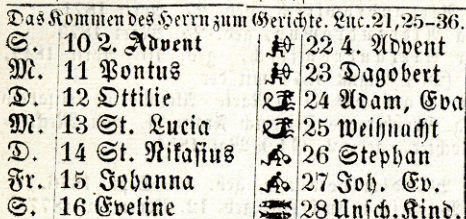 Das Kommen des Herrn zum Gerichte. Luc. 21, 25–36.
S. 10 2. Advent 22 4. Advent
M. 11 Pontus 23 Dagobert
D. 12 Ottilie 24 Adam, Eva
M. 13 St. Lucia 25 Weihnacht
D. 14 St. Nikasius 26 Stephan
Fr. 15 Johanna 27 Joh. Ev.
S. 16 Eveline 28 Unsch. Kind